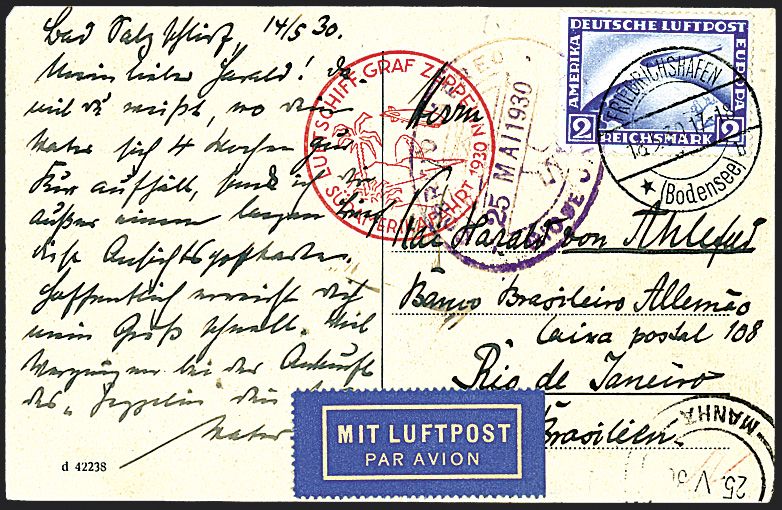 Bad Salzschlirf, 14/5 30.
Mein lieber Harald! Da
weil Du weißt, wo dein
Vater sich 4 Wochen zur
Kur aufhält, send ich Dir
außer einem langen Brief
diese Ansichtspostkarte.
Hoffentlich erreicht Dich
mein Gruß schnell. Viel
Vergnügen bei der Ankunft
des "Zeppelin"
Vater
d 42238
LUFTSCHIFF GRAF ZEPPELIN
SÜDAMERIKAFAHRT 1930
25 MAI 1930
DEUTSCHE LUFTPOST
AMERIKA
EUROPA
2 REICHSMARK 2
FRIEDRICHSHAFEN
(Bodensee)
Herrn
Harald von Ahlefeld
Banco Brasileiro Allemão
Caixa postal 108
Rio de Janeiro
Brasilien
MIT LUFTPOST
PAR AVION
MANHÃ
25. V